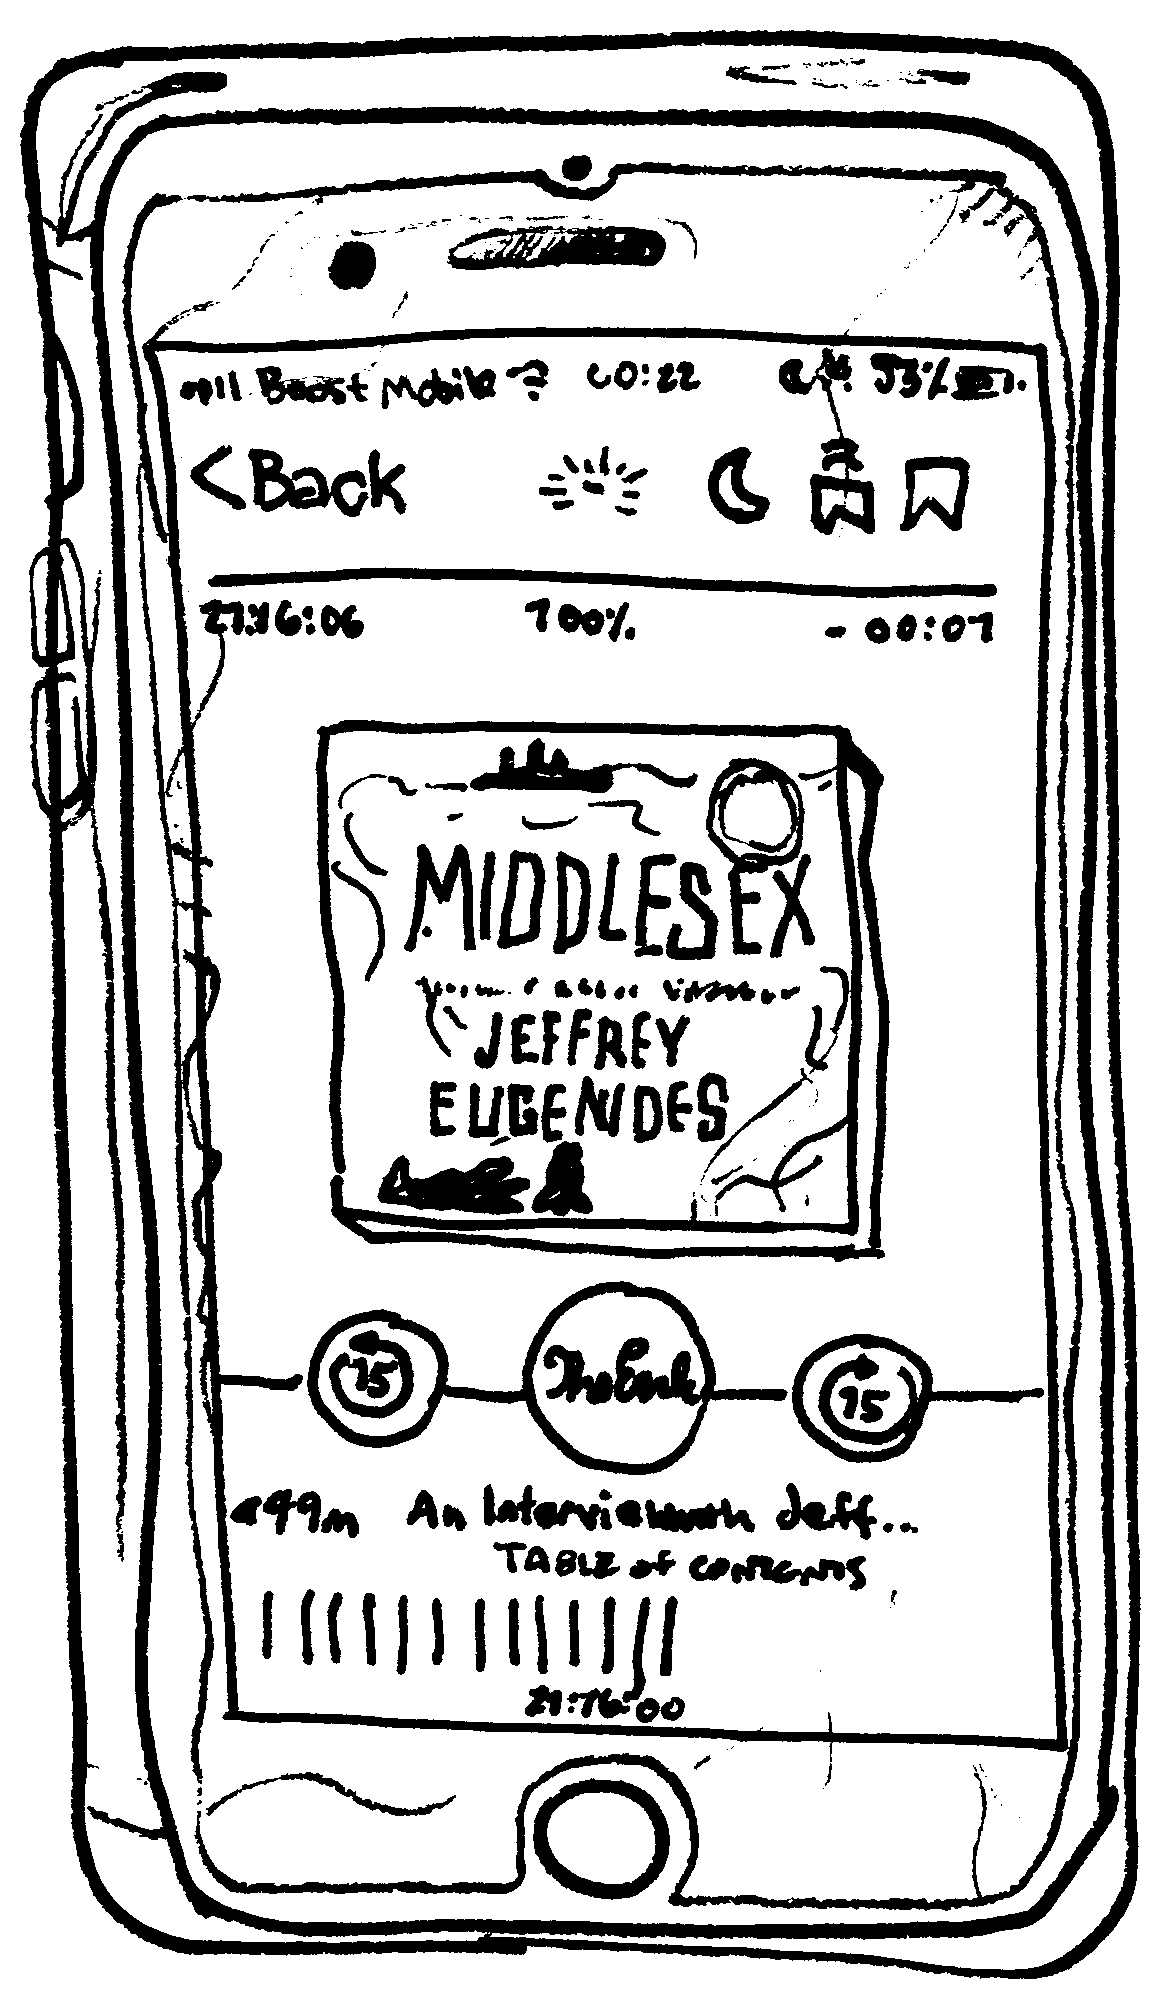 Boost Mobile 00:22 93%
<Back
21:16:06 100% - 00:07
MIDDLESEX
JEFFREY
EUGENIDES
15 The End 15
49m An Interview with Jeff...
TABLE of CONTENTS
21:16:00